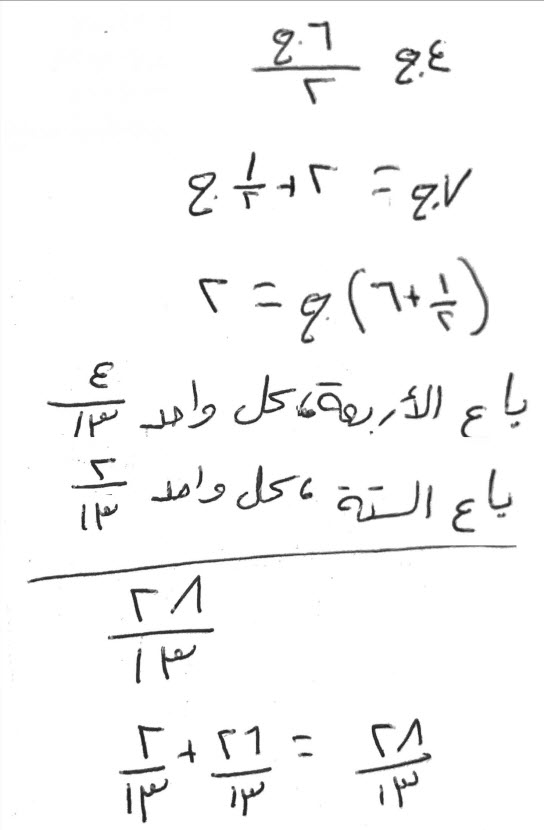 ٤ج ٦ج/٢
٧ج = ٢ + ١/٢ ج
(١/٢ + ٦) ج = ٢
باع الأربعة، كل واحد ٤/١٣
باع الستة، كل واحد ٢/١٣
٢٨/١٣
٢٨/١٣ = ٢٦/١٣ + ٢/١٣